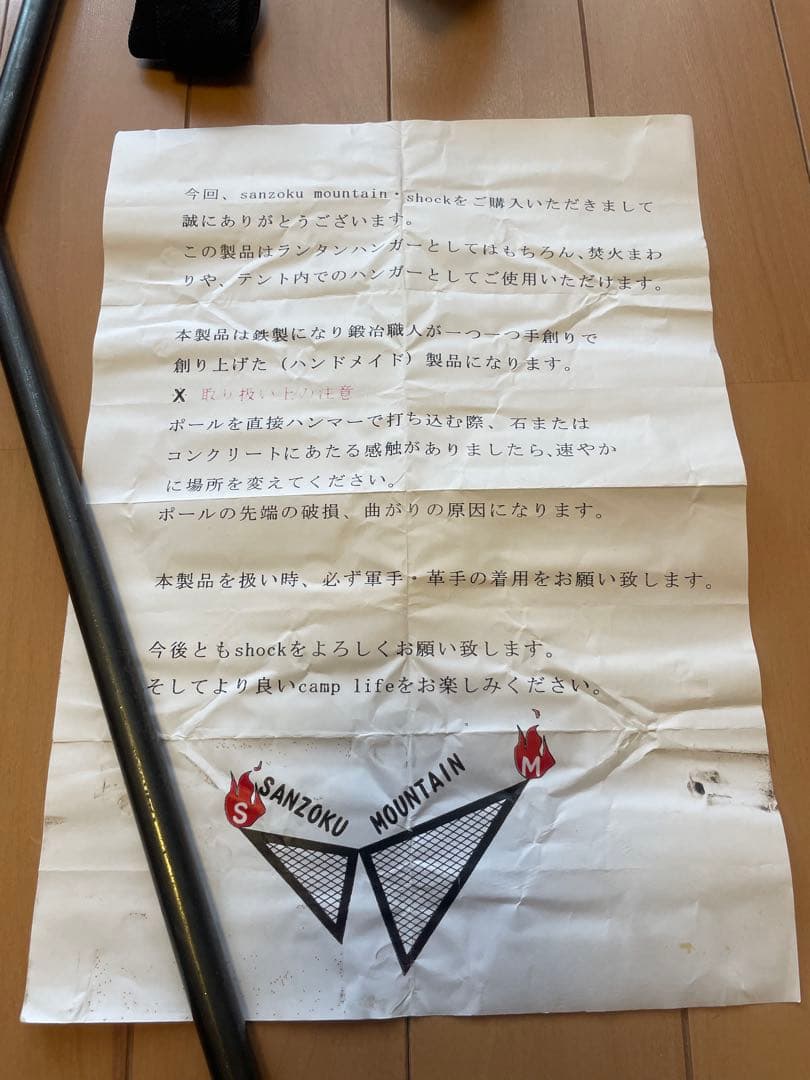 今回、sanzoku mountain・shockをご購入いただきまして
誠にありがとうございます。
この製品はランタンハンガーとしてはもちろん、焚火まわ
りや、テント内でのハンガーとしてご使用いただけます。
本製品は鉄製になり鍛冶職人が一つ一つ手創りで
創り上げた（ハンドメイド）製品になります。
X 取り扱い上の注意
ポールを直接ハンマーで打ち込む際、石または
コンクリートにあたる感触がありましたら、速やか
に場所を変えてください。
ポールの先端の破損、曲がりの原因になります。
本製品を扱い時、必ず軍手・革手の着用をお願い致します。
今後ともshockをよろしくお願い致します。
そしてより良いcamp lifeをお楽しみください。
S SANZOKU MOUNTAIN M